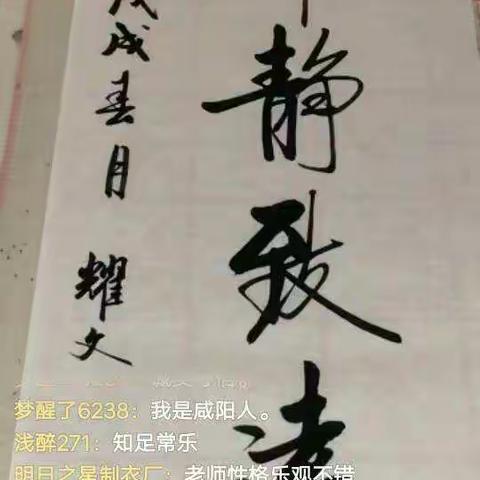 静致
戊戌春月 耀文
梦醒了6238：我是咸阳人。
浅醉271：知足常乐
明日之星制衣厂：老师性格乐观不错